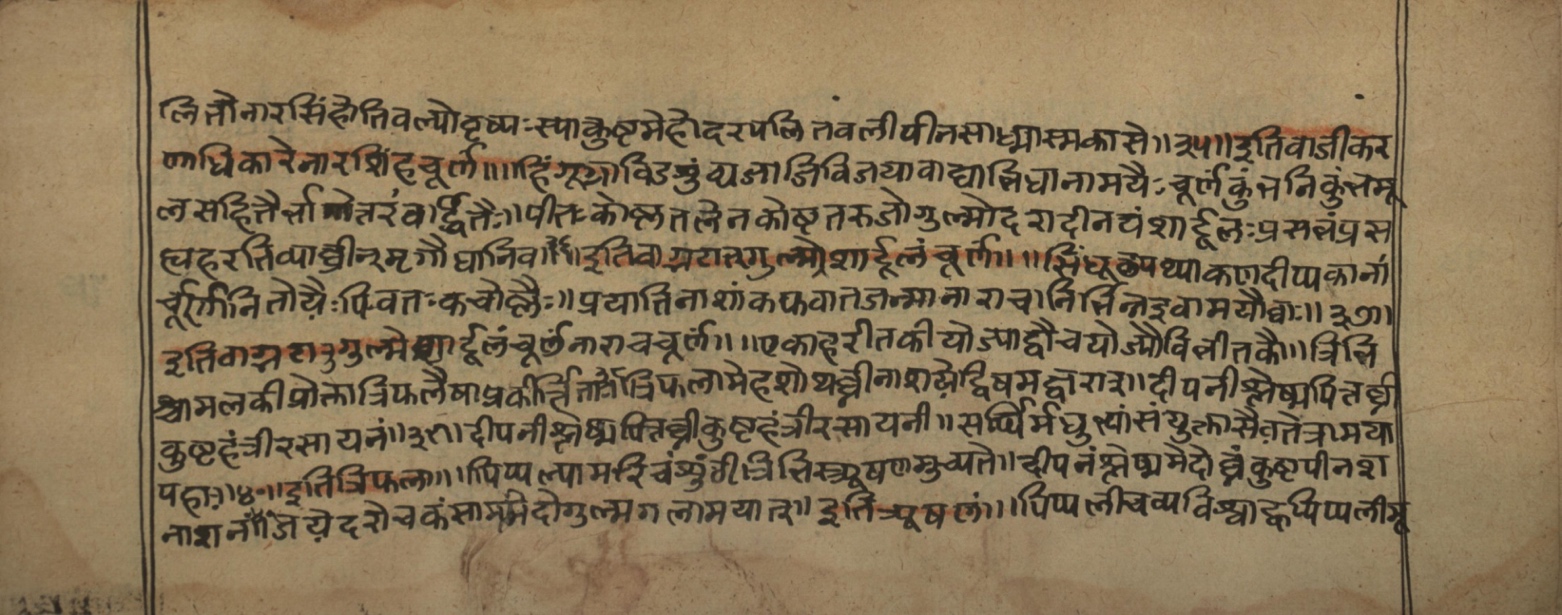 लितौनारसिंहोतिवल्योवृष्यःस्याकुष्टमेहोदरपलितवलीपीनसाध्मास्मकासे॥३५॥इतिवाजीकर
णाधिकारेनारशिंहचूर्ण॥॥हिंगूग्राविडशुंठ्यजाजिविजयावाद्यालिधानामयैःचूर्णकुंलनिकुंलमू
लसहितै पीतःकोष्णजलेनकोष्टतरुजोगुल्मोदरादीनयंशार्दूलःप्रसलंप्रस
ह्यहरतिव्याधीन्मृगौघानिव॥इतिवाग्भटात्गुल्मेशार्दूलंचूर्ण॥॥सिंधूत्थपथ्याकणदीप्यकानां
चूर्णानितोयैःपिवतःकवोष्णैः॥प्रयातिनाशंकफवातजन्मानाराचनिर्लिन्नइवामयौघः॥३७॥
इतिवाग्भटात्गुल्मेशार्दूलंचूर्णनाराचचूर्ण॥॥एकाहरीतकीयोज्याद्वौचयोज्यौविलीतकै॥त्रिलि
श्चामलकीप्रोक्तात्रिफलैषाप्रकीर्त्तिता॥त्रिफलामेहशोथघ्नीनाशयेद्विषमज्वरान्॥दीपनीश्लेष्मपित्तघ्नी
कुष्टहंत्रीरसायनं॥३९॥दीपनीश्लेष्मपित्तघ्नीकुष्टहंत्रीरसायनी॥सर्प्पिर्मधुल्यांसंयुक्तासैवनेत्रामया
पहा॥४०॥इतित्रिफला॥॥पिप्पल्यामरिचंशुंठीत्रिलिस्त्र्यूषणमुच्यते॥दीपनंश्लेष्ममेदोघ्नंकुष्टपीनश
नाशनं॥जयेदरोचकंसामंमेदोगुल्मगलामयान्॥इतित्र्यूषणं॥॥पिप्पलीचव्यविश्वाह्वपिप्पलीमू